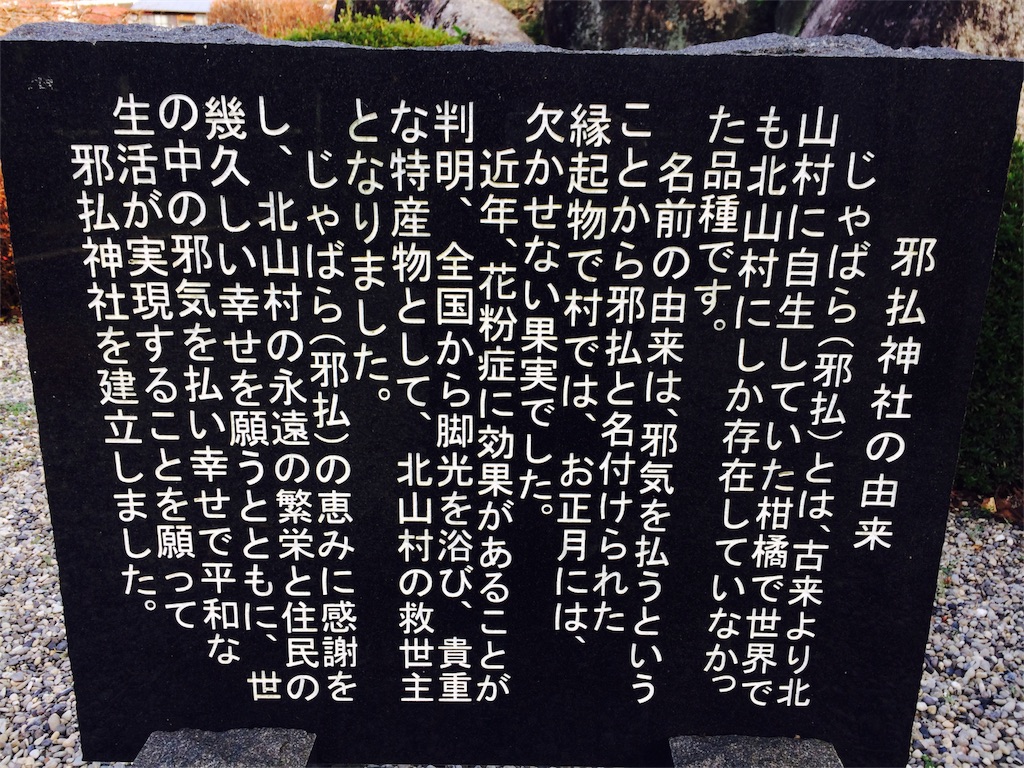 邪払神社の由来
じゃばら(邪払)とは、古来より北
山村に自生していた柑橘で世界で
も北山村にしか存在していなかっ
た品種です。
名前の由来は、邪気を払うという
ことから邪払と名付けられた
縁起物で村では、お正月には、
欠かせない果実でした。
近年、花粉症に効果があることが
判明、全国から脚光を浴び、貴重
な特産物として、北山村の救世主
となりました。
じゃばら(邪払)の恵みに感謝を
し、北山村の永遠の繁栄と住民の
幾久しい幸せを願うとともに、世
の中の邪気を払い幸せで平和な
生活が実現することを願って
邪払神社を建立しました。